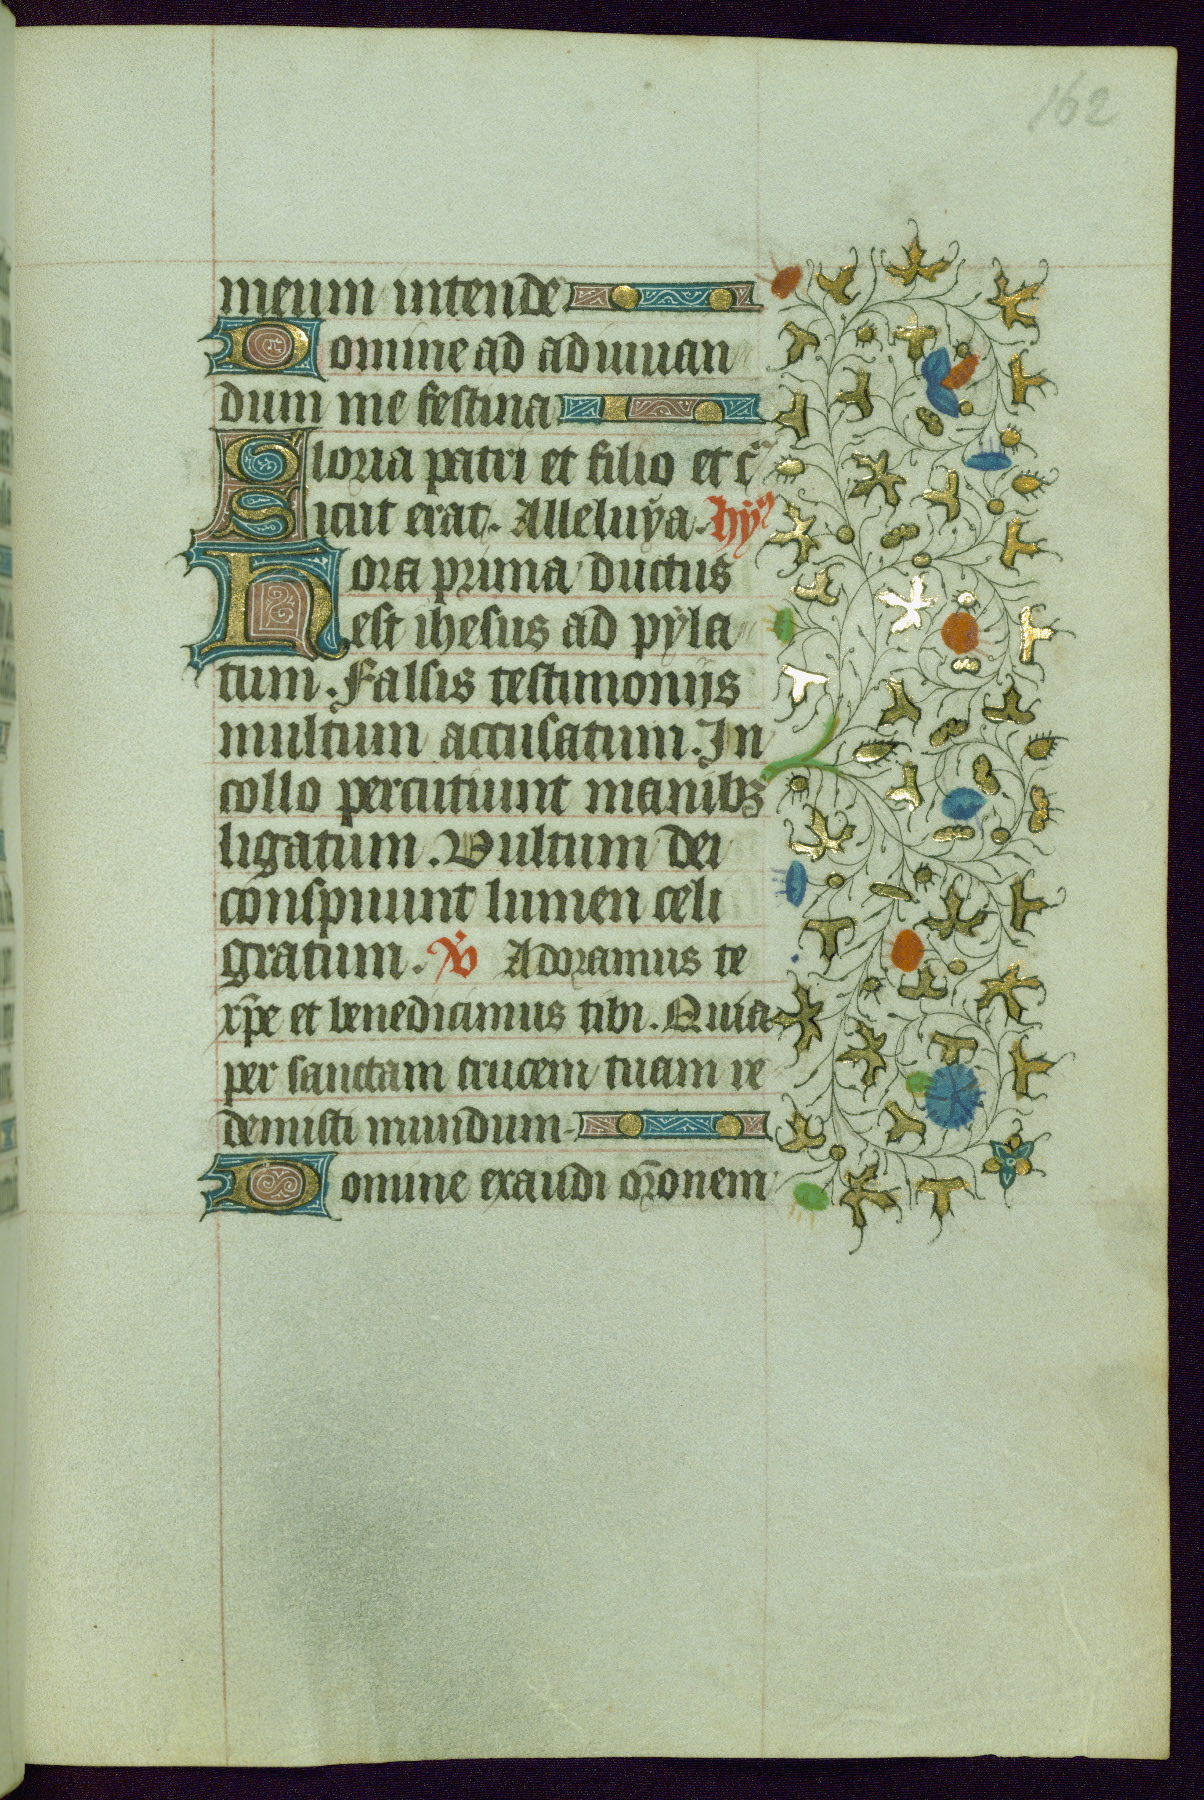 162
meum intende
Domine ad adiuuan
dum me festina
Gloria patri et filio et c̄
Sicut erat. Alleluẏa. hẏ
Hora prima ductus
est ihesus ad pẏla
tum. Falsis testimonijs
multum accusatum. In
collo percutiunt manibꝫ
ligatum. Vultum dei
conspuunt lumen celi
gratum. V̇ Adoramus te
xp̄e et benedicimus tibi. Quia
per sanctam crucem tuam re
demisti mundum
Domine exaudi or̄onem